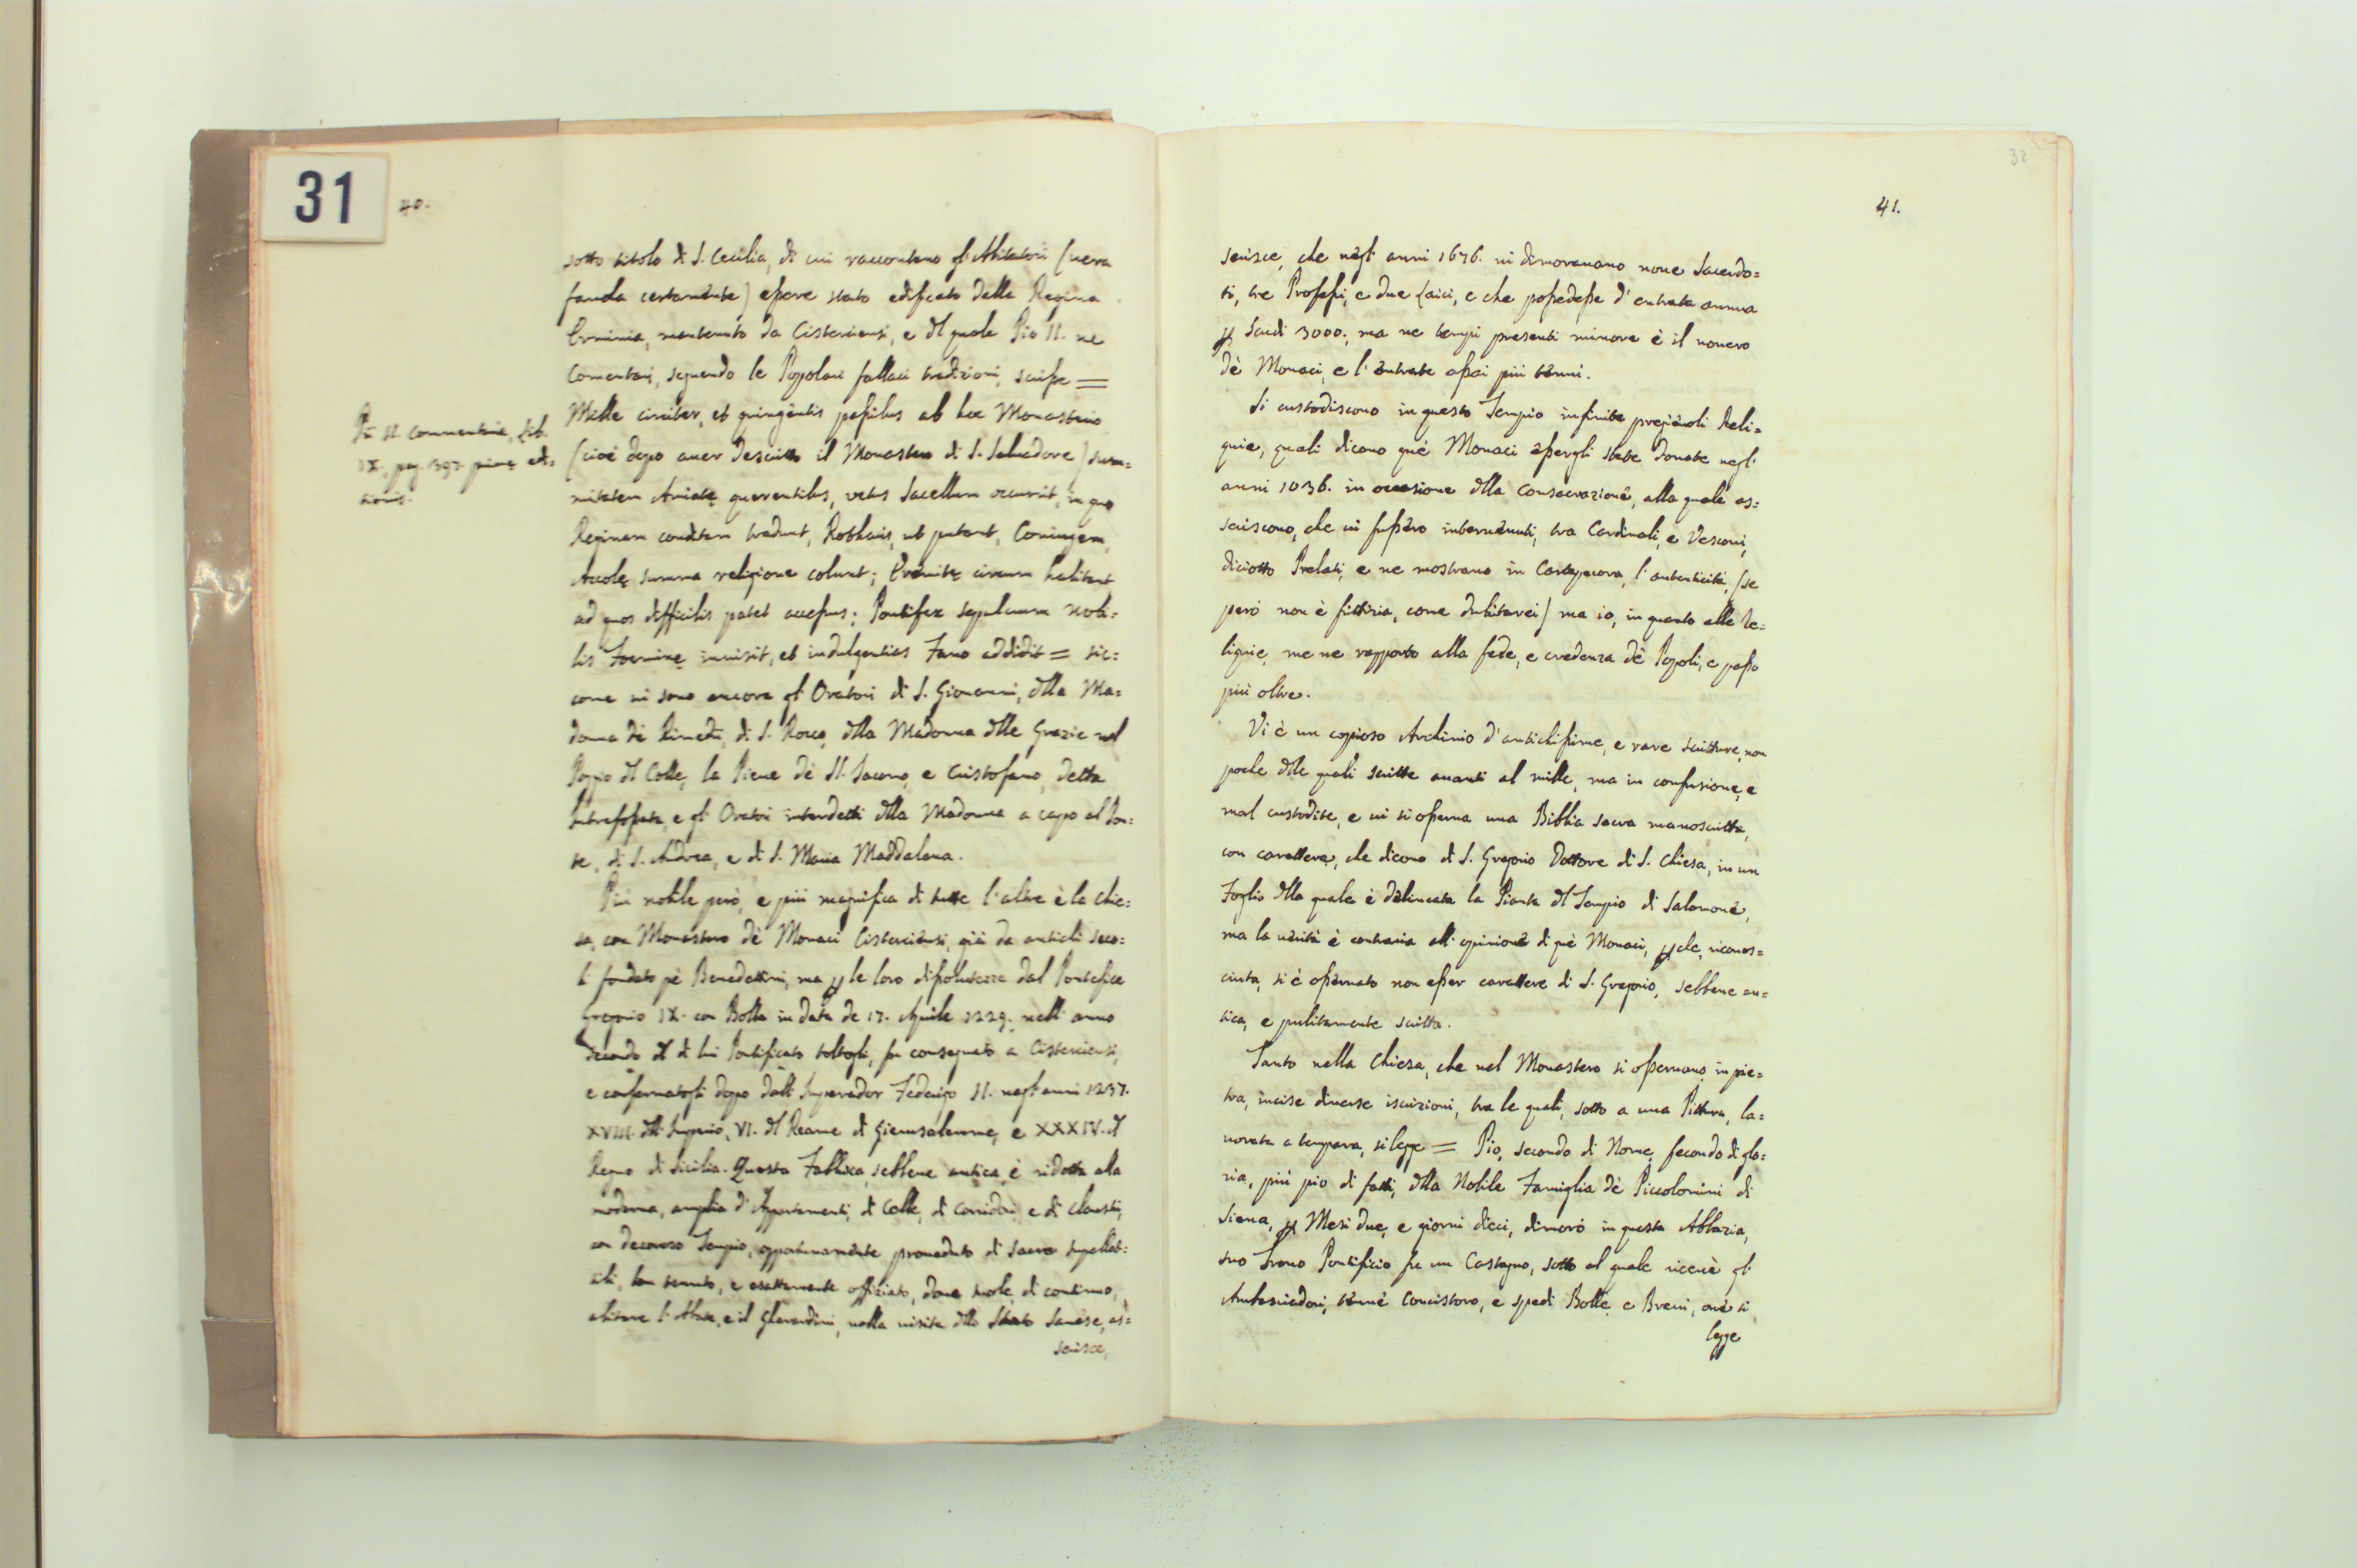 31
40.
sotto titolo di S. Cecilia, di cui raccontano gl'Abitatori (mera
favola certamente) eßere stato edificato dalla Regina
Erminia, mantenuto da Cisterciensi, e dl quale Pio II. ne
Comentari, seguendo le Popolari fallaci tradizioni, scriße =
Mille circiter, et quingentis paßibus ab hoc Monasterio
Pii II. Commentaria, Lib.
IX. pag. 397. primę edi=
tionis.
(cioè dopo aver descritto il Monastero di S. Salvadore) sum=
mitatem Amiatę querentibus, vetus Sacellum occurrit, in quo
Reginam conditam tradunt, Rotharis, ut putant, Coniugem,
Accolę summa religione colunt; Eremitę circum habitant
ad quos difficilis patet acceßus; Pontifex sepulcrum Nobi=
lis Foeminę inuisit, et indulgentias Fano addidit = sic=
come vi sono ancora gl'Oratori di S. Giovanni, dlla Ma=
donna dè Rimedi, di S. Rocco, dlla Madonna dlle Grazie nel
Poggio dl Colle, la Pieve dè SS. Jacomo, e Cristofano, detta
Intrafoßata, e gl'Oratori interdetti dlla Madonna a capo al Pon=
te, di S. Andrea, e di S. Maria Maddalena.
Più nobile però, e più magnifica di tutte l'altre è la Chie=
sa, con Monastero dè Monaci Cisterciensi, già da antichi seco=
li fondato pè Benedettini, ma p le loro dißolutezze dal Pontefice
Gregorio IX. con Bolla in data de 17. Aprile 1229. nell'anno
secondo dl di lui Pontificato toltogli, fu consegnato a Cisterciensi,
e confermatogli dopo dall'Imperador Federigo II. negl'anni 1237.
XVIII. dll'Imperio, VI. dl Reame di Gierusalemme, e XXXIV. dl
Regno di Sicilia. Questa Fabbrica, sebbene antica, è ridotta alla
moderna, amplia d'Appartamenti, di Celle, di Corridori, e di Claustri,
con decoroso Tempio, opportunamente proueduto di sacre suppellet=
tili, ben tenuto, e esattamente offiziato, doue suole, di continuo,
abitare l'Abate, e il Gherardini, nella visita dllo Stato Sanese, as=
serisce,
32
41.
serisce, che negl'anni 1676. vi dimoravano nove Sacerdo=
ti, tre Profeßi, e due Laici, e che poßedeße d'entrata annua
p Scudi 3000; ma ne tempi presenti minore è il novero
dè Monaci, e l'entrate aßai più tenui.
Si custodiscono in questo Tempio infinite pregievoli Reli=
quie, quali dicono què Monaci eßergli state donate negl'
anni 1036. in occasione dlla Consacrazione, alla quale as=
seriscono, che vi fußero intervenuti, tra Cardinali, e Vescovi,
diciotto Prelati, e ne mostrano in Cartapecora, l'autenticità, (se
però non è fittizia, come dubitarei) ma io, in quanto alle Re=
liquie, me ne rapporto alla fede, e credenza dè Popoli, e paßo
più oltre.
Vi è un copioso Archivio d'antichißime, e rare scritture, non
poche dlle quali scritte avanti al mille, ma in confusione, e
mal custodite, e vi si oßerva una Biblia sacra manoscritta,
con carattere, che dicono di S. Gregorio Dottore di S. Chiesa, in un
Foglio dlla quale è delineata la Pianta dl Tempio di Salomone,
ma la verità è contraria all'opinione di què Monaci, p che, riconos=
ciuta, si è oßervato non eßer carattere di S. Gregorio, sebbene an=
tica, e pulitamente scritta.
Tanto nella Chiesa, che nel Monastero si oßervano, in pie=
tra, incise diverse iscrizioni, tra le quali, sotto a una Pittura, la=
vorata a tempara, si legge = Pio, secondo di Nome, fecondo di glo=
ria, più pio di fatti, dlla Nobile Famiglia dè Piccolomini di
Siena, p Mesi due, e giorni dieci, dimorò in questa Abbazia,
suo Trono Pontificio fu un Castagno, sotto al quale ricevè gl'
Ambasciadori, tenne Concistoro, e spedì Bolle, e Brevi, ove si
legge